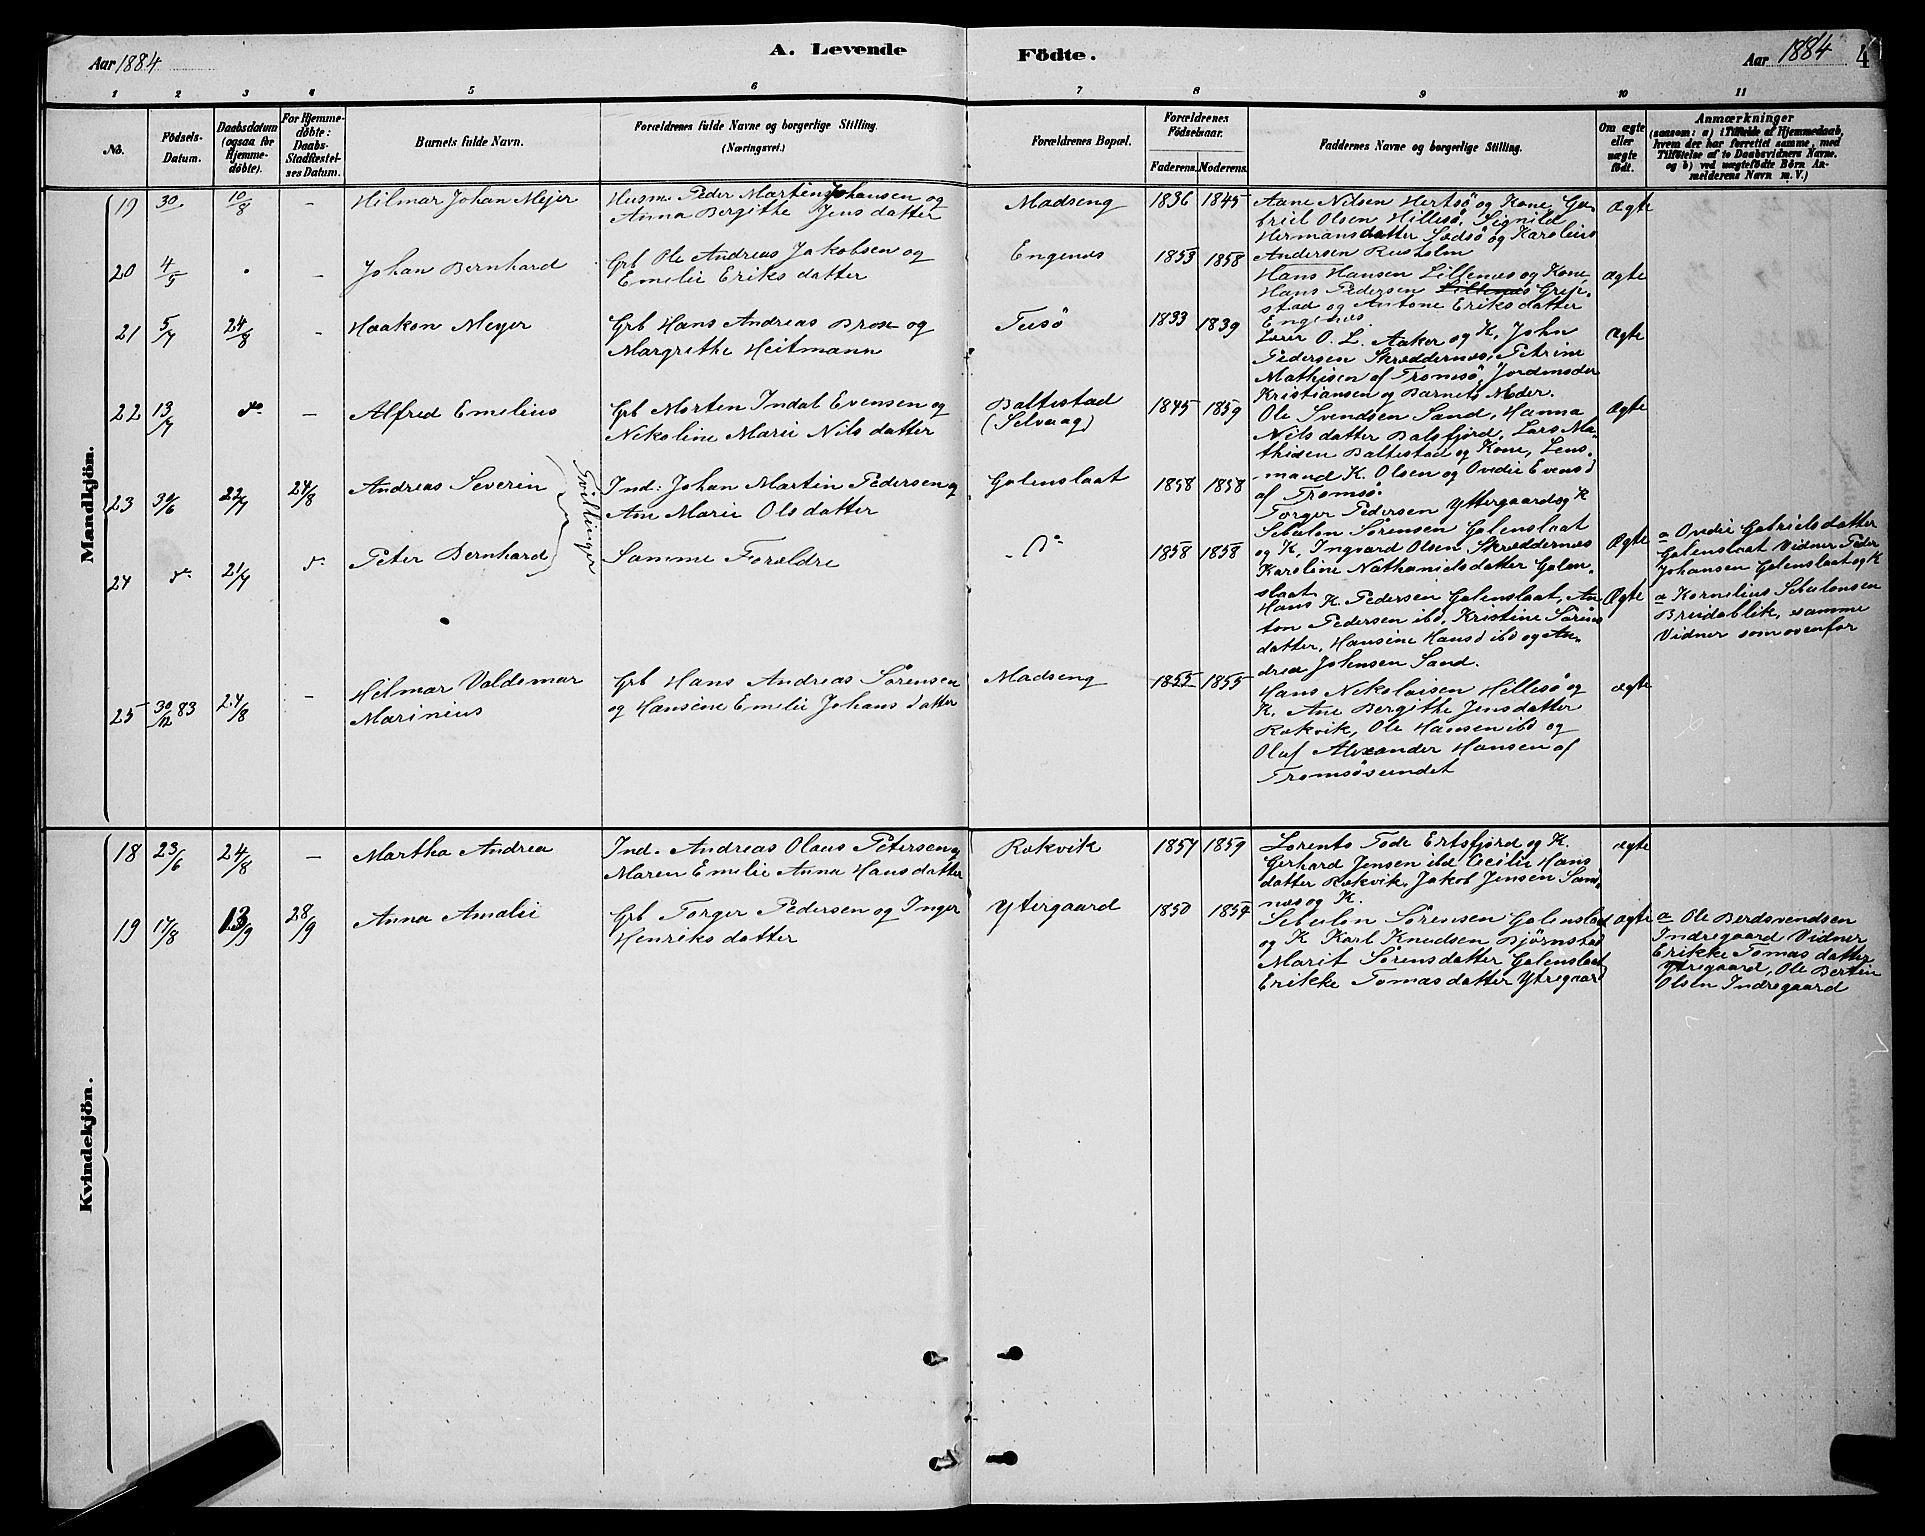 Aar 1884
A. Levende
Födte.
Aar 1884
4
1 2 3 4 5 6 7 8 9 10 11
No.
Födsels-
Datum.
Daabsdatum
(ogsaa for
Hjemme-
döbte).
For Hjemme-
döbte:
Daabs-
Stadfæstel-
ses Datum.
Barnets fulde Navn.
Forældrenes fulde Navne og borgerlige Stilling.
(Næringsvei.)
Forældrenes Bopæl.
Forældrenes
Födselsaar.
Faderens. Moderens.
Faddernes Navne og borgerlige Stilling.
Om ægte
eller
uægte
födt.
Anmærkninger
(saasom: a) i Tilfælde af Hjemmedaab,
hvem der har forrettet samme, med
Tilföielse af to Daabsvidners Navne,
og b) ved uægtefödte Börn An-
melderens Navn m. V.)
Mandkjön.
19 30 10/8 – Hilmar Johan Mejer
Husm. Peder Martin Johansen og
Anna Bergithe Jensdatter
Madseng 1836 1845
Aane Nilsen Hertsö og Kone, Ga-
briel Olsen Hillesö, Signilde
Hermansdatter Sedsö og Karolius
Andersen Rusholm
ægte
20 4/5 – Johan Bernhard
Grb Ole Andreas Jakobsen og
Emelie Eriksdatter
Engenes 1853 1858
Hans Hansen Lillenes og Kone,
Hans Pedersen Lillenes Greip-
stad og Antone Eriksdatter
Engenes
ægte
21 5/7 24/8 – Haakon Meyer
Grb Hans Andreas Brox og
Margrethe Heitmann
Tusö 1833 1839
Lærer O. L. Aaker og K, John
Pedersen Skræddernes, Petrine
Mathisen af Tromsö, Jordemoder
Kristiansen og Barnets Moder.
Ægte
22 13/7 do – Alfred Emelius
Grb Morten Indal Evensen og
Nikoline Marie Nilsdatter
Baltestad
(Selvaag)
1845 1859
Ole Svendsen Sand, Hanna
Nilsdatter Balsfjord, Lars Ma-
thisen Baltestad og Kone, Lens-
mand K. Olsen og Ovedie Evensd
af Tromsö.
Ægte
23 30/6 22/7 24/8 Andreas Severin
Tvillinger
Ind: Johan Martin Pedersen og
Ane Marie Olsdatter
Galenslaat 1858 1858
Torger Pedersen Yttergaard og K
Sebulon Sörensen Galenslaat
og K, Ingvard Olsen Skræddernes
Karoline Nathanielsdatter Galen-
slaat
Ægte
a Ovedie Gabrielsdatter
Galenslaat Vidner Peder
Johansen Galenslaat og K
24 do 21/7 do Peter Bernhard
Samme Forældre
Do 1858 1858
Hans K. Pedersen Galenslaat, An-
ton Pedersen ibd, Kristine Sörens
datter, Hansine Hansd ibd og An-
drea Johnsen Sand.
Ægte
a Kornelius Sebulonsen
Breidablik, samme
Vidner som ovenfor
25 30/12 83 24/8 – Hilmar Valdemar
Marinius
Grb Hans Andreas Sörensen
og Hansine Emelie Johansdatter
Madseng 1855 1855
Hans Nikolaisen Hillesö og
K. Ane Bergithe Jensdatter
Rokvik, Ole Hansen ibd og
Oluf Alexander Hansen af
Tromsösundet
ægte
Kvindekjön.
18 23/6 24/8 – Martha Andrea
Ind. Andreas Olaus Petersen og
Maren Emelie Anna Hansdatter
Rokvik 1857 1859
Lorents Tode Ertsfjord og K.
Gerhard Jensen ibd Cecilie Hans
datter Rokvik, Jakob Jensen Sand-
nes og K.
ægte
19 17/8 13/9 28/9 Anna Amalie
Grb Torger Pedersen og Inger
Henriksdatter
Ytergaard 1850 1854
Sebulon Sörensen Galenslaat
og K Karl Knudsen Bjørnstad
Marit Sörensdatter Galenslaat
Erikke Tomasdatter Ytregaard
ægte
a Ole Berdsvendsen
Indregaard Vidner
Erikke Tomasdatter
Ytregaard, Ole Bertin
Olsen Indregaard